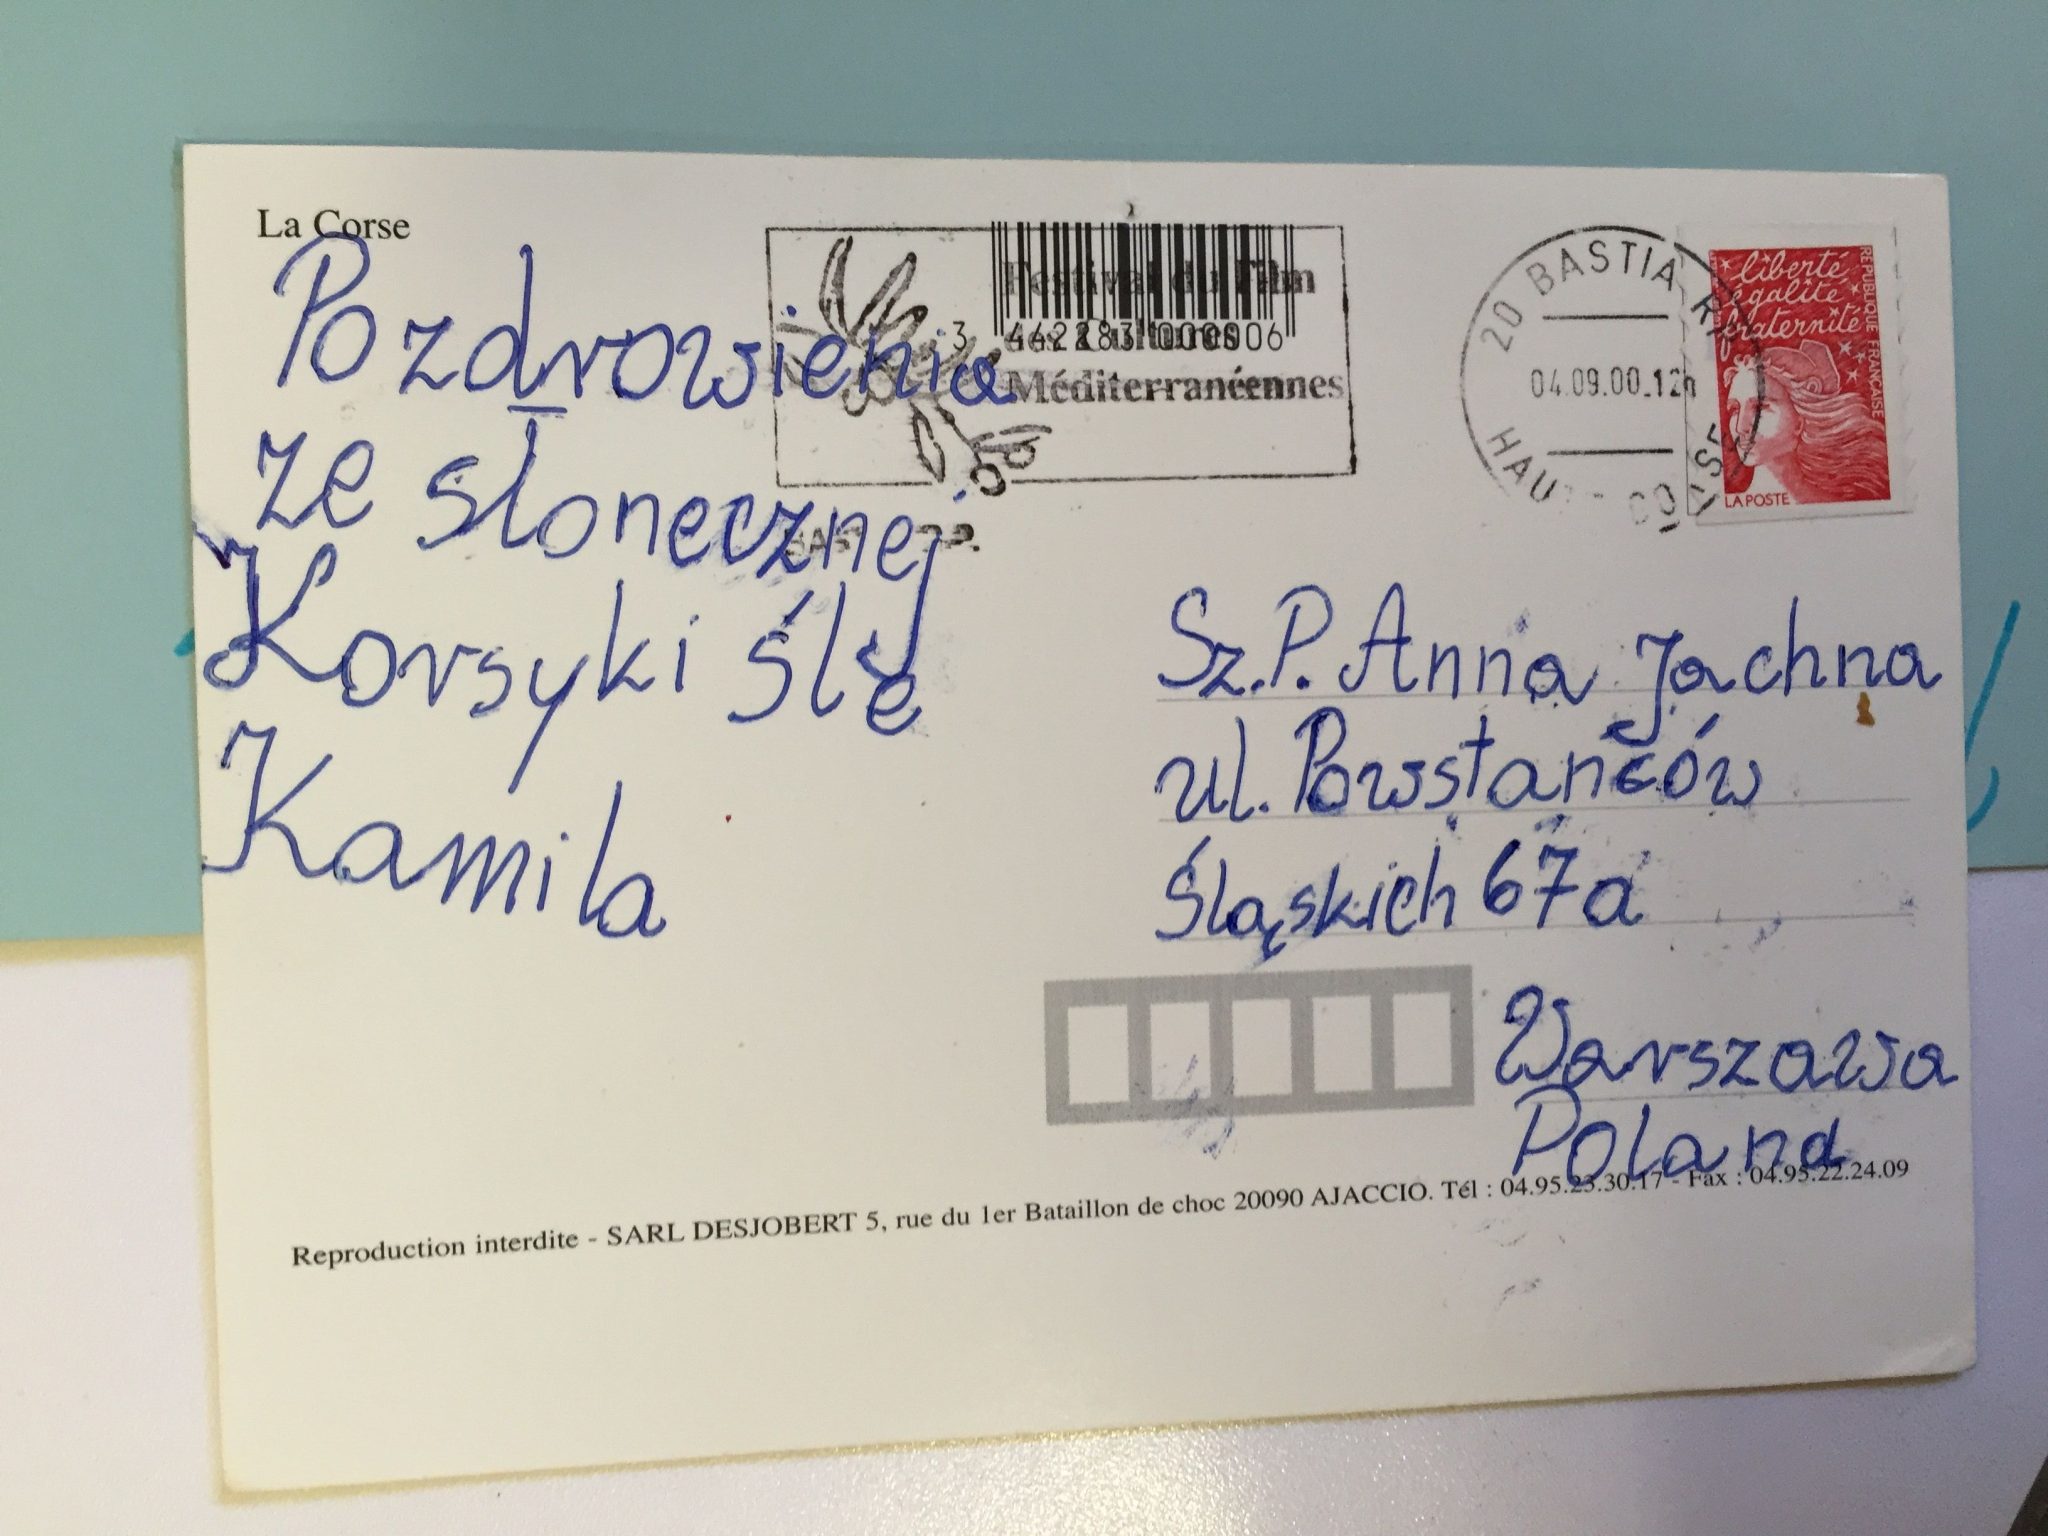 La Corse
Pozdrowienia
ze słonecznej
Korsyki ślę
Kamila
3 442283 000006
Festival du Film
des Cultures
Méditerranéennes
20 BASTIA R.P.
04.09.00.12h
HAUTE CORSE
liberté
égalité
fraternité
RÉPUBLIQUE FRANÇAISE
LA POSTE
Sz.P. Anna Jachna
ul. Powstańców
Śląskich 67a
Warszawa
Poland
Reproduction interdite - SARL DESJOBERT 5, rue du 1er Bataillon de choc 20090 AJACCIO. Tél : 04.95.23.30.17 - Fax : 04.95.22.24.09